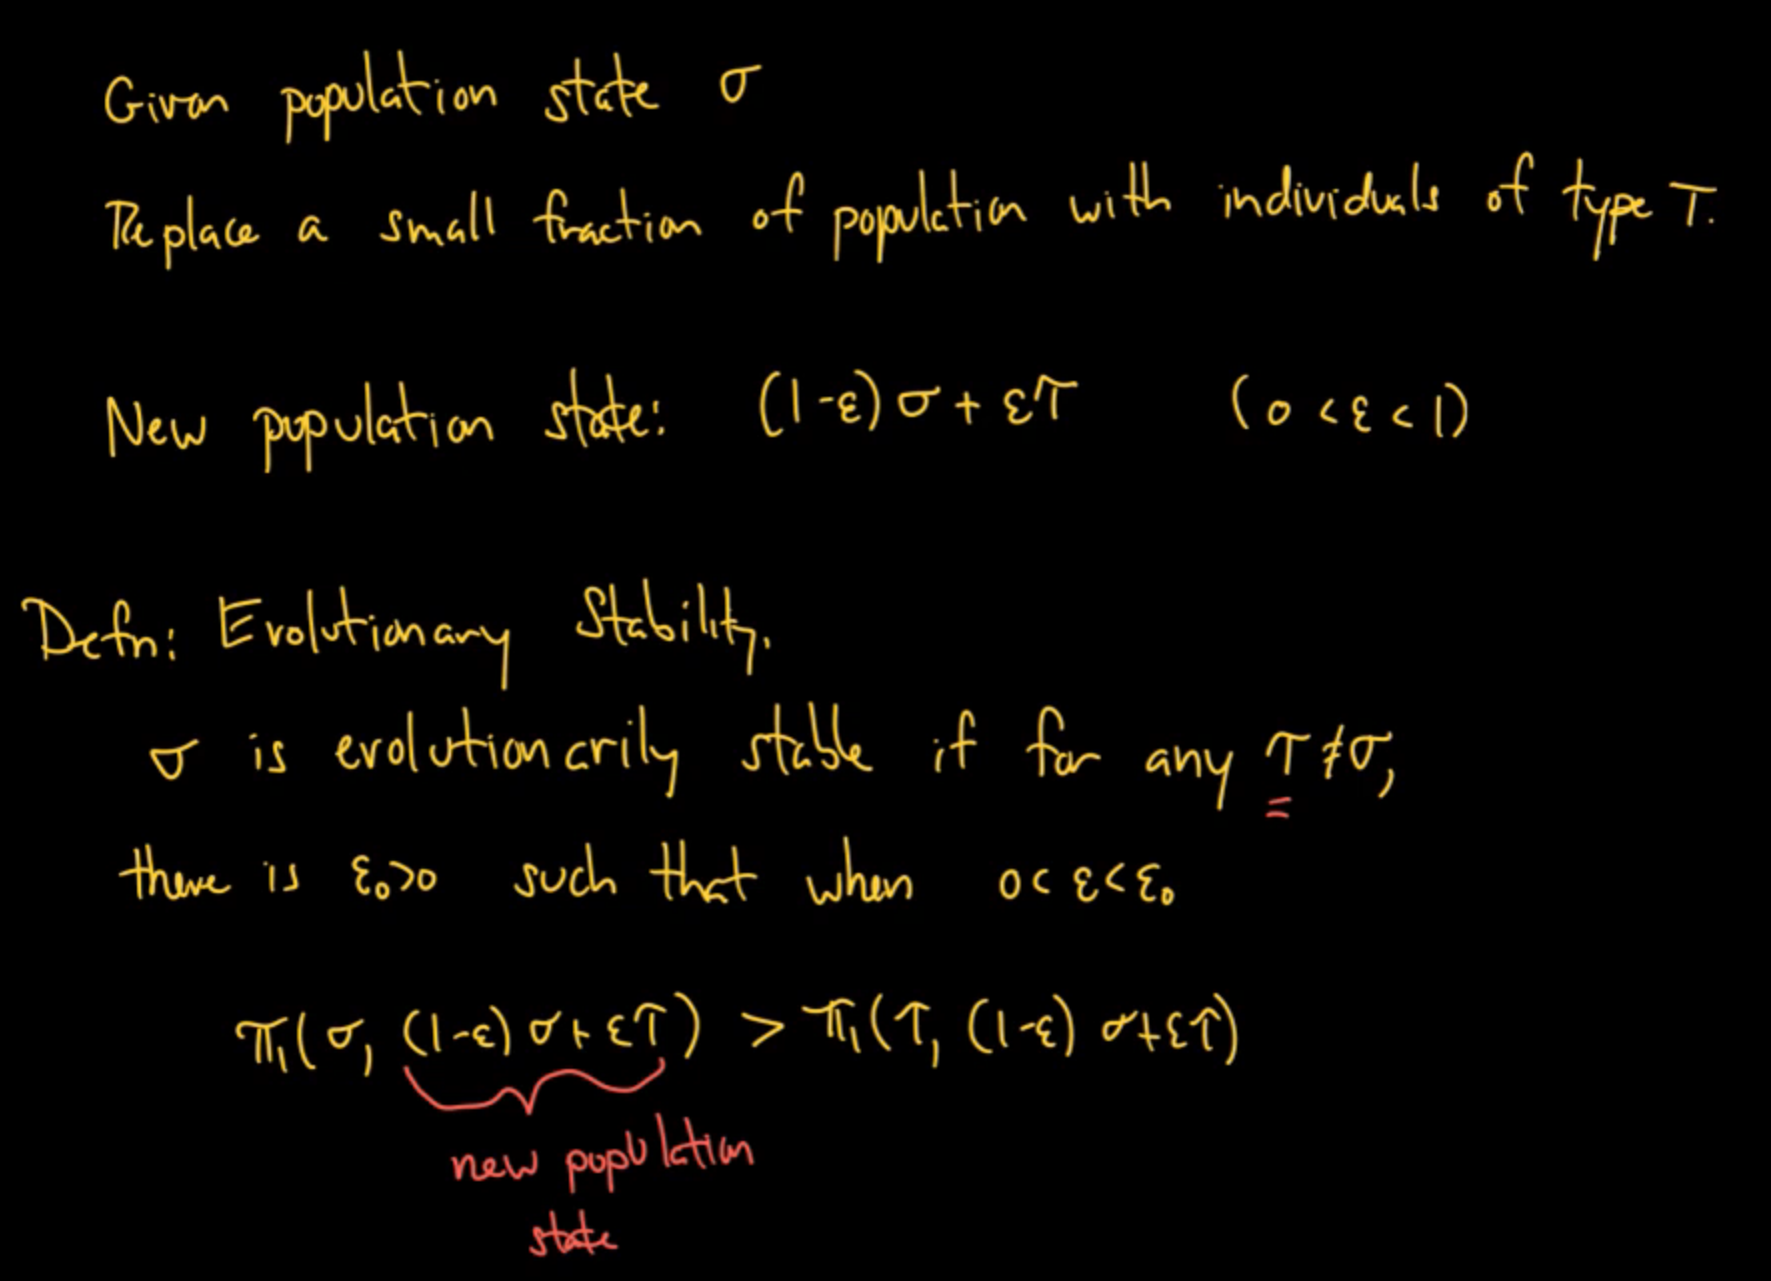 Given population state σ
Replace a small fraction of population with individuals of type τ.
New population state: (1-ε)σ + ετ (0 < ε < 1)
Defn: Evolutionary Stability.
σ is evolutionarily stable if for any τ ≠ σ,
there is ε₀>0 such that when 0 < ε < ε₀
π₁(σ, (1-ε) σ + ετ) > π₁(τ, (1-ε) σ + ετ)
new population
state